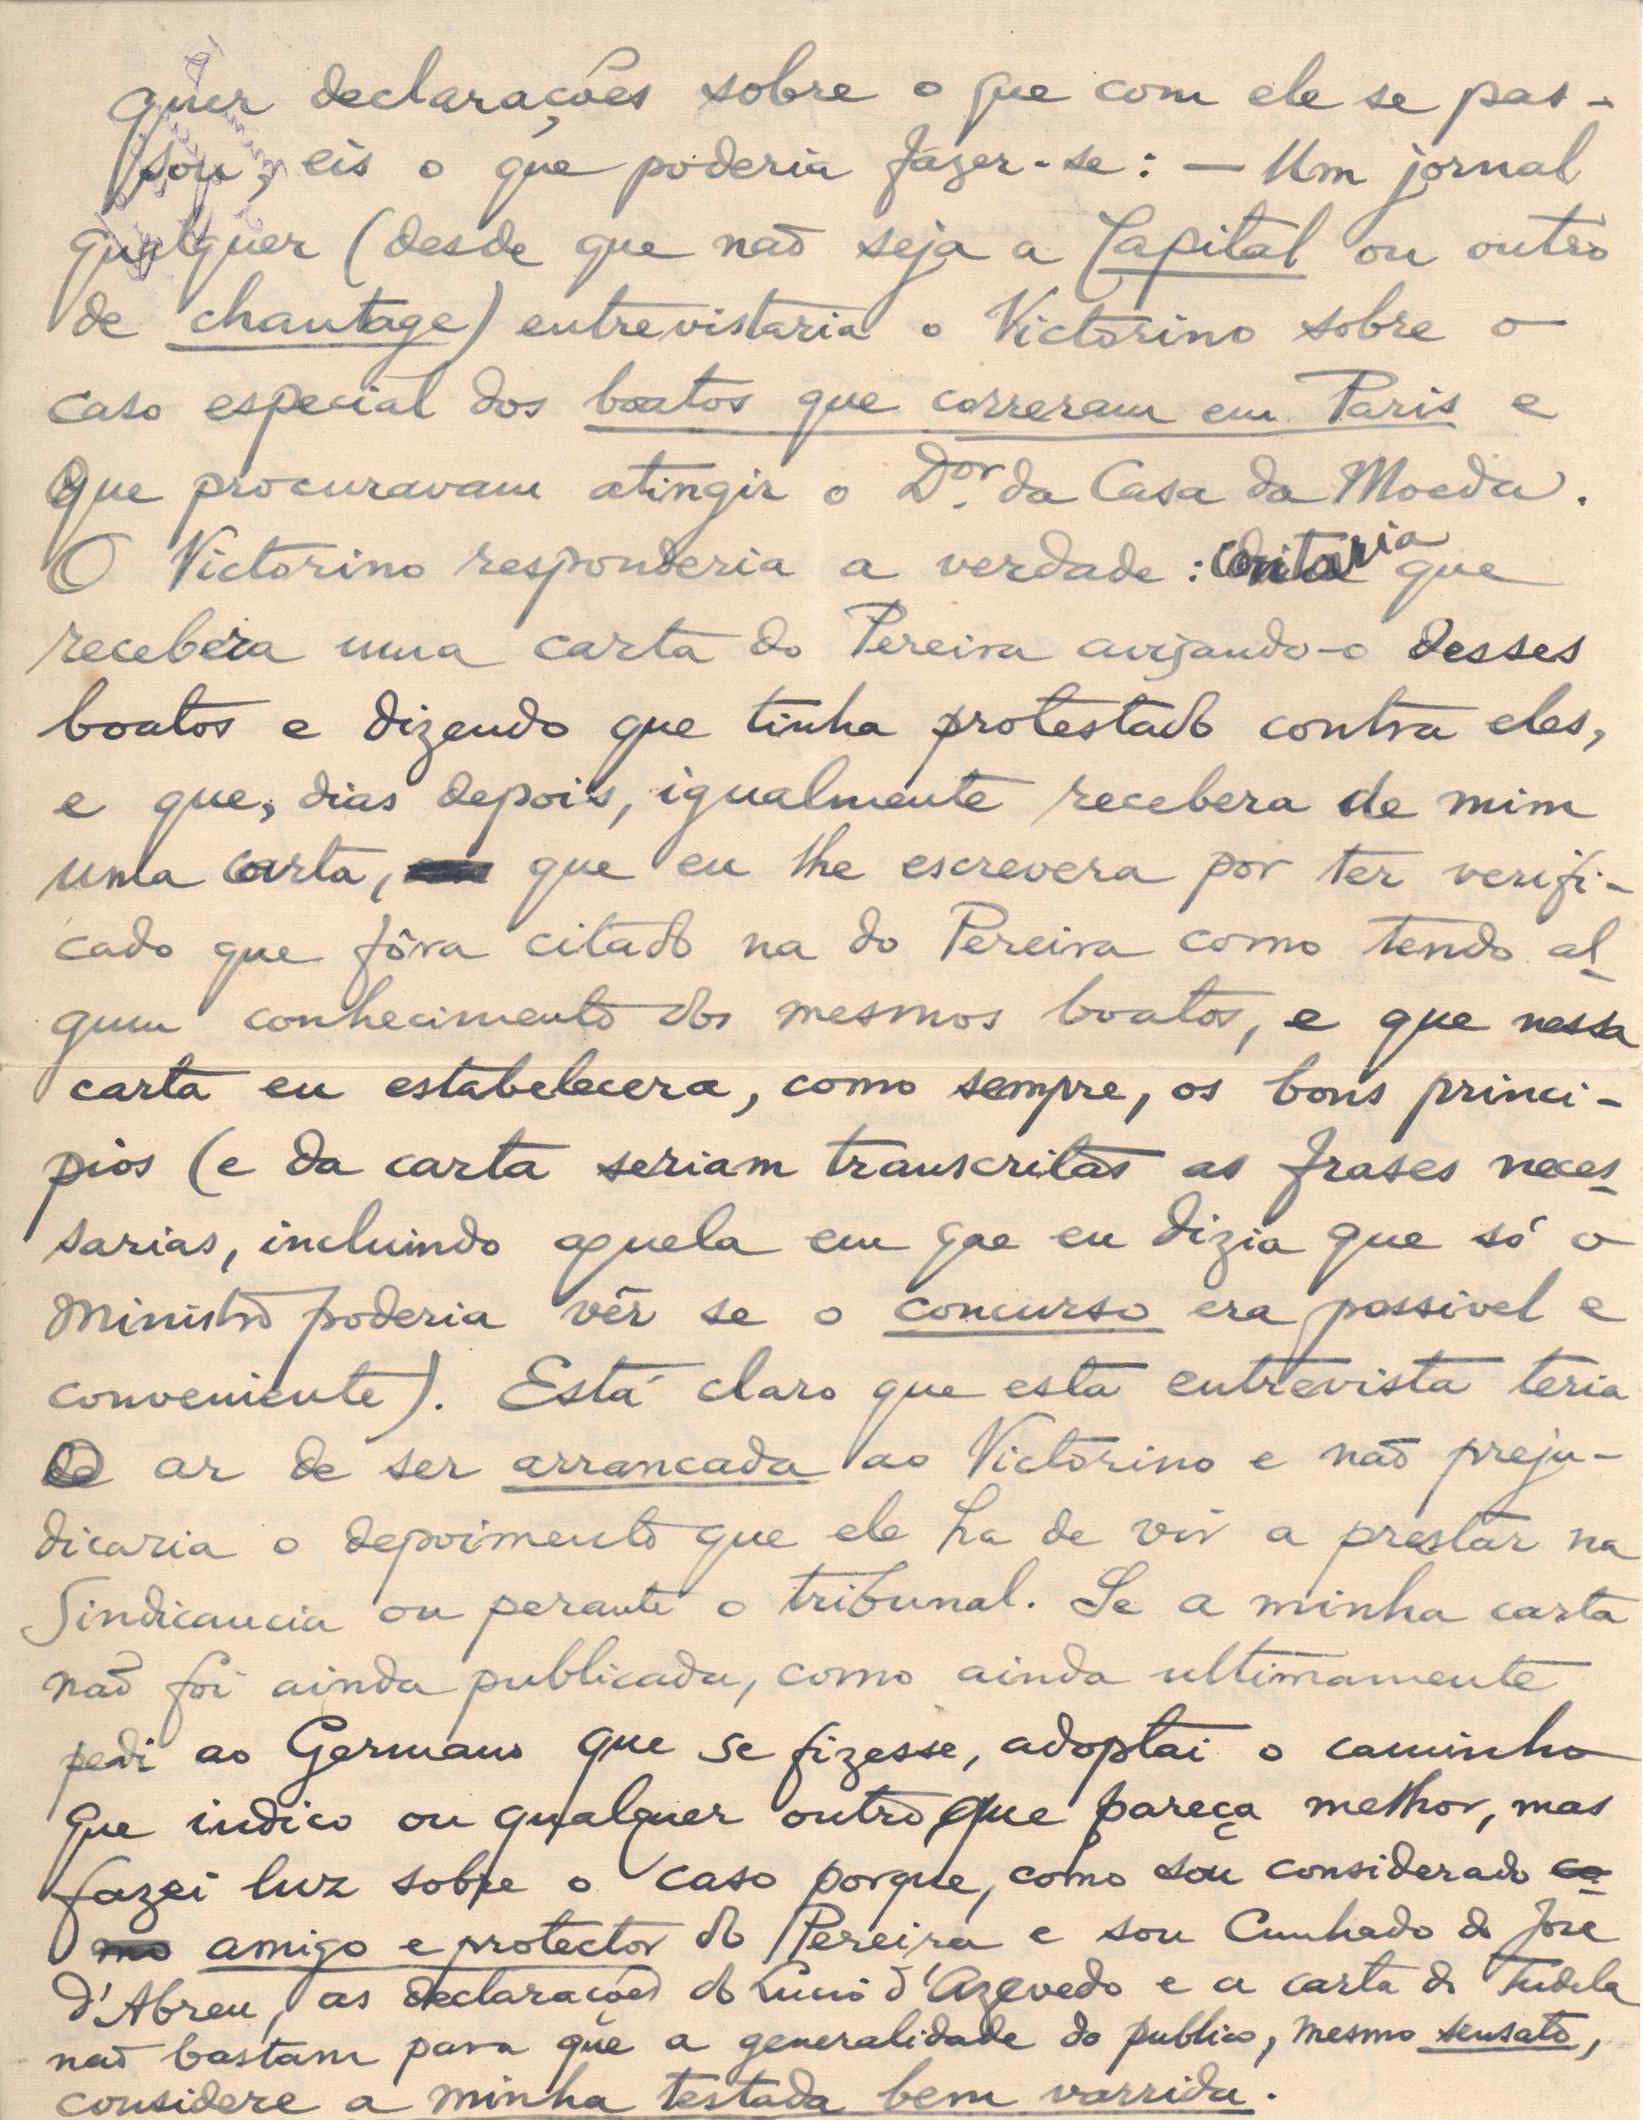 quer declarações sobre o que com ele se pas-
sou, eis o que poderia fazer-se: — Um jornal
qualquer (desde que não seja a Capital ou outro
de chantage) entrevistaria o Victorino sobre o
caso especial dos boatos que correram em Paris e
que procuravam atingir o Dor. da Casa da Moeda.
O Victorino responderia a verdade: contaria que
recebera uma carta do Pereira avisando-o desses
boatos e dizendo que tinha protestado contra eles,
e que, dias depois, igualmente recebera de mim
uma carta, que eu lhe escrevera por ter verifi-
cado que fôra citado na do Pereira como tendo al-
gum conhecimento dos mesmos boatos, e que nessa
carta eu estabelecera, como sempre, os bons princi-
pios (e da carta seriam transcritas as frases neces-
sarias, incluindo aquela em que eu dizia que só o
Ministro poderia vêr se o concurso era possivel e
conveniente). Está claro que esta entrevista teria
o ar de ser arrancada ao Victorino e não preju-
dicaria o depoimento que ele ha de vir a prestar na
Sindicancia ou perante o tribunal. Se a minha carta
não foi ainda publicada, como ainda ultimamente
pedi ao Germano que se fizesse, adoptai o caminho
que indico ou qualquer outro que pareça melhor, mas
fazei luz sobre o caso porque, como sou considerado co-
mo amigo e protector do Pereira e sou Cunhado do José
d'Abreu, as declarações do Lucio d'Azevedo e a carta do Tudela
não bastam para que a generalidade do publico, mesmo sensato,
considere a minha testada bem varrida.